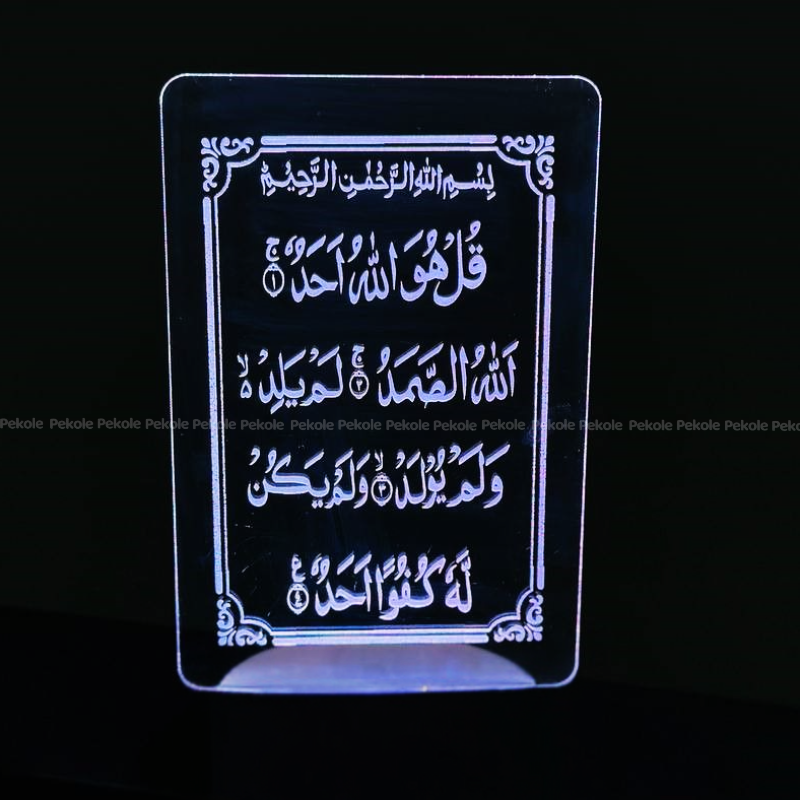 بِسْمِ اللهِ الرَّحْمٰنِ الرَّحِيْمِ
قُلْ هُوَ اللهُ اَحَدٌ ۚ ۝١
اَللهُ الصَّمَدُ ۚ ۝٢ لَمْ يَلِدْ ۙ۵
وَلَمْ يُوْلَدْ ۙ ۝٣ وَلَمْ يَكُنْ
لَّهٗ كُفُوًا اَحَدٌ ۝٤ ع
Pekole Pekole Pekole Pekole Pekole Pekole Pekole Pekole Pekole Pekole Pekole Pekole Pekole Pekole Pekole Pekole Peko